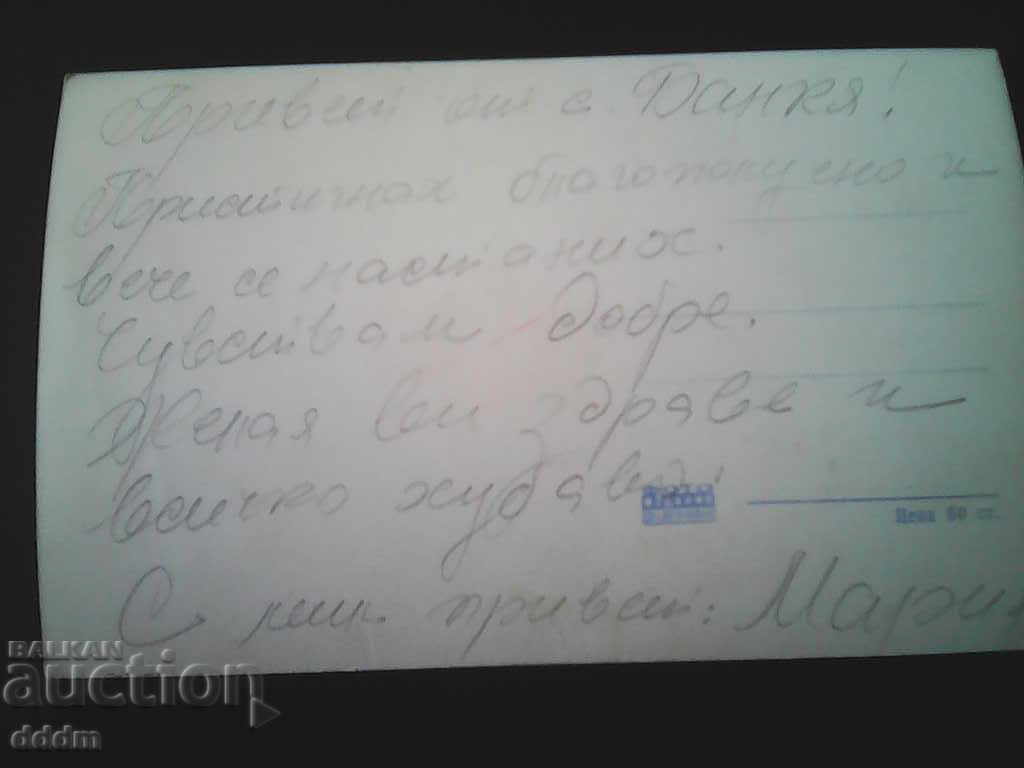 Привет от с. Данкя!
Пристигнах благополучно и
вече се настаних.
Чувствам добре.
Желая ви здраве и
всичко хубаво!
Цена 60 ст.
С привет: Мария
BALKAN
auction
dddm